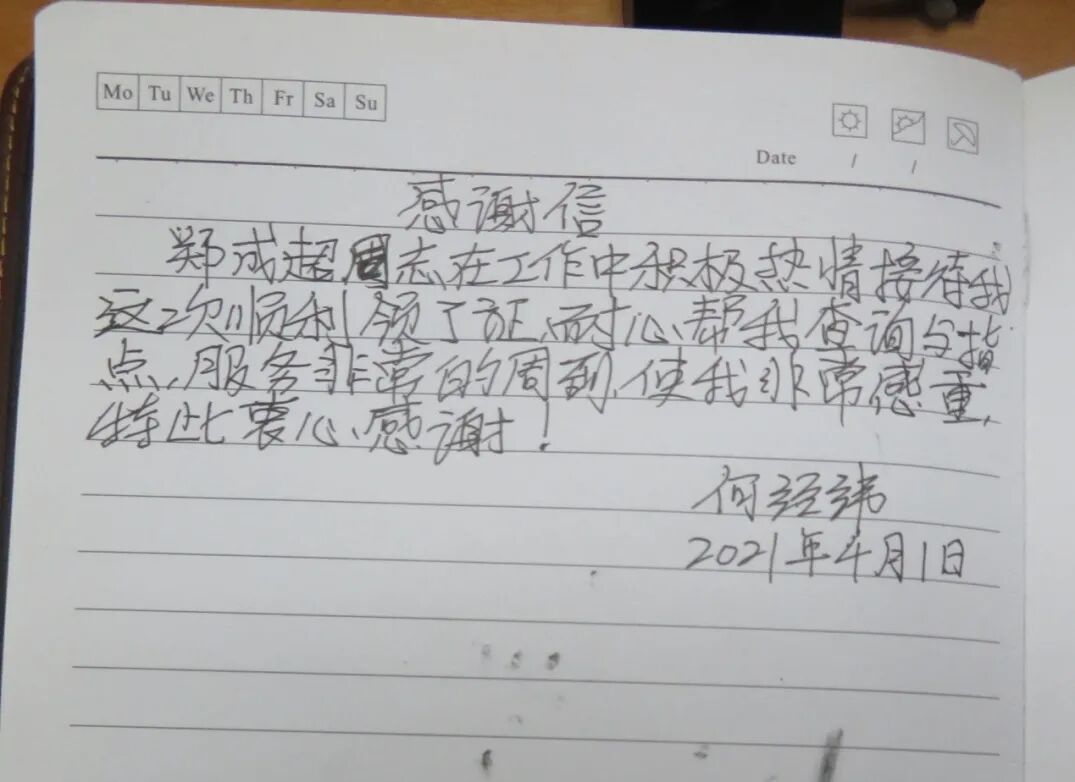 Mo Tu We Th Fr Sa Su
Date / /
感谢信
郑成超同志在工作中积极热情接待我
这次顺利领了证,耐心帮我查询与指
点,服务非常的周到,使我非常感重,
特此衷心感谢!
何经纬
2021年4月1日